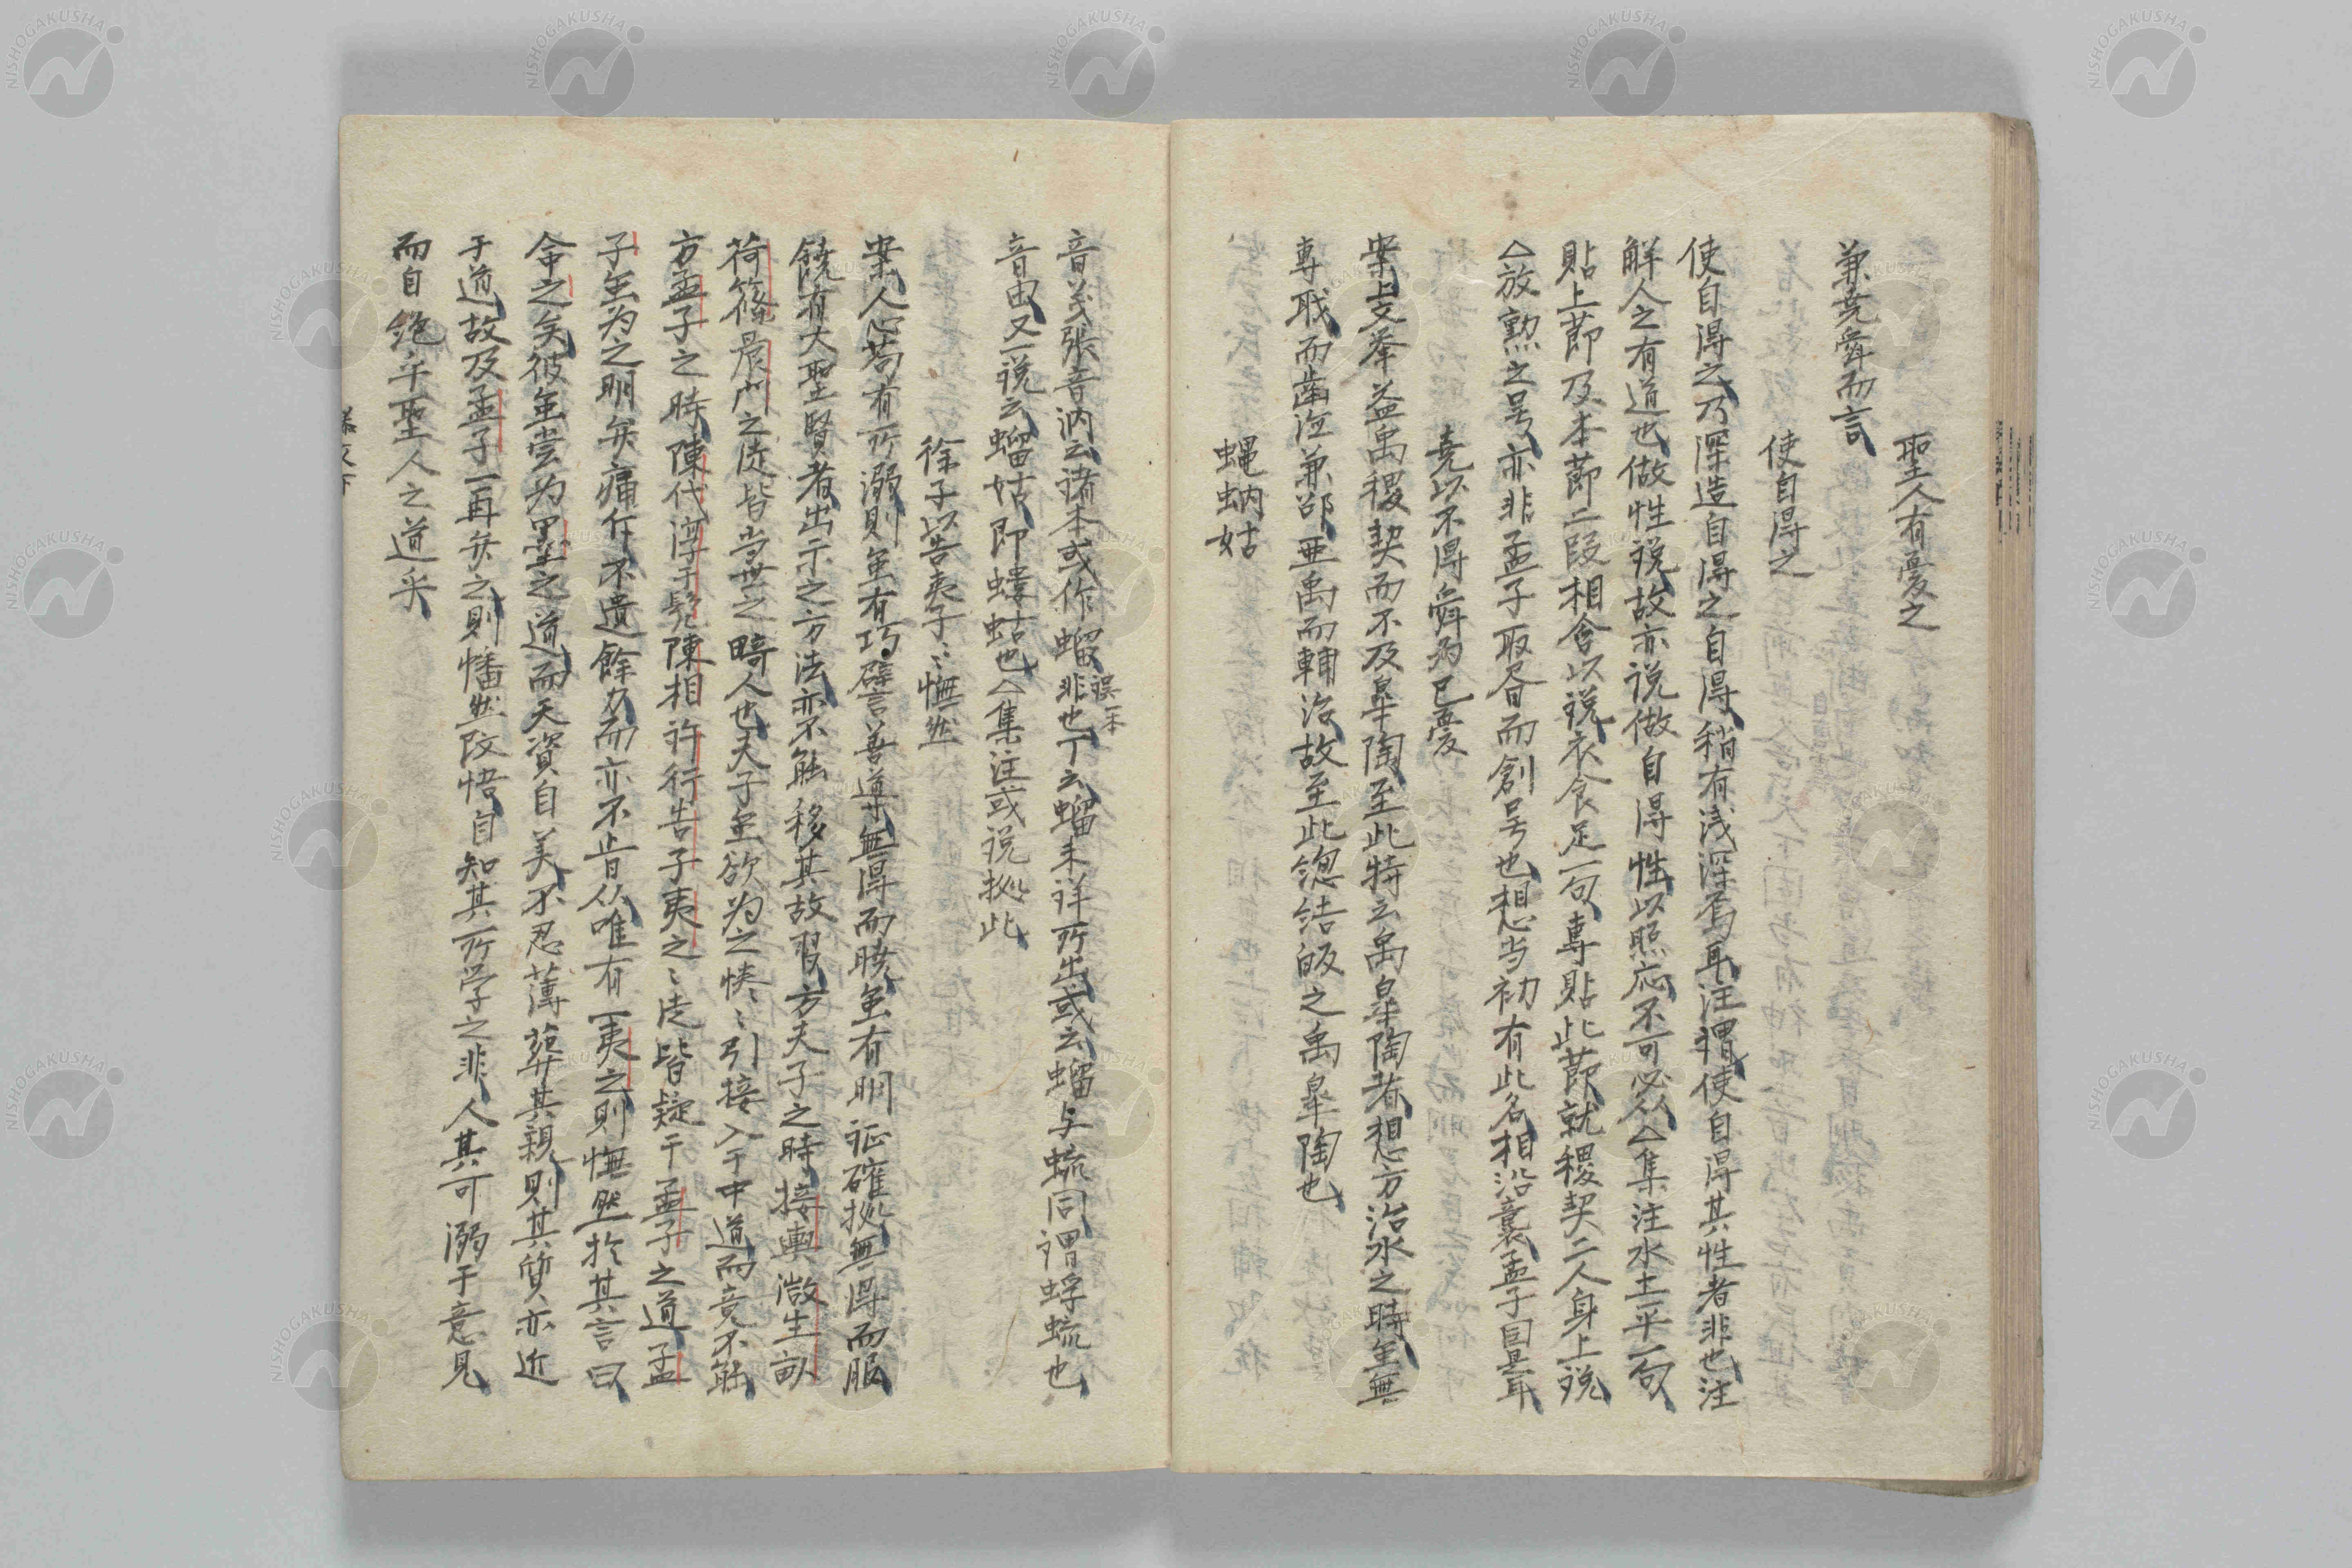 聖人有憂之
兼堯舜而言
使自得之
使自得之乃深造自得之自得稍有浅深焉耳注謂使自得其性者非也注
解人之有道也做性説故亦説做自得性以照応不可必从△集注水土平一句
貼上節及本節二段相含以説衣食足一句専貼此節就稷契二人身上説
△放勲之号亦非孟子取昏而創号也想当初有此名相沿襲孟子因是耳
堯以不得舜為己憂
案上文挙益禹稷契而不及皐陶至此特云禹皐陶者想方治水之時虽無
専職而歯迩兼郃亜禹而輔治故至此総結皈之禹皐陶也
蝿蚋姑
音義張音汭云諸本或作蝿誤一本非也丁云蝿未詳所出或云蝿与蜉同謂蜉蝣也
音由又一説云蝿姑即螻蛄也△集注或説拠此
徐子以告夷子〻憮然
案人心苟有所溺則虽有巧譬言善導無得而暁虽有明証確拠無得而服
饒有大聖賢者出示之方法亦不能移其故習方夫子之時接輿微生畝
荷篠晨門之徒皆当世之畸人也夫子虽欲為之悽〻引接入于中道而竟不能
方孟子之時陳代淳于髠陳相許行告子夷之〻徒皆疑于孟子之道孟
子虽為之明弁痛斥不遺餘力而亦不肯从唯有一夷之則憮然於其言曰
命之矣彼虽嘗為墨之道而天資自美不忍薄葬其親則其質亦近
于道故及孟子一再弁之則幡然改悟自知其所学之非人其可溺于意見
而自絶乎聖人之道乎